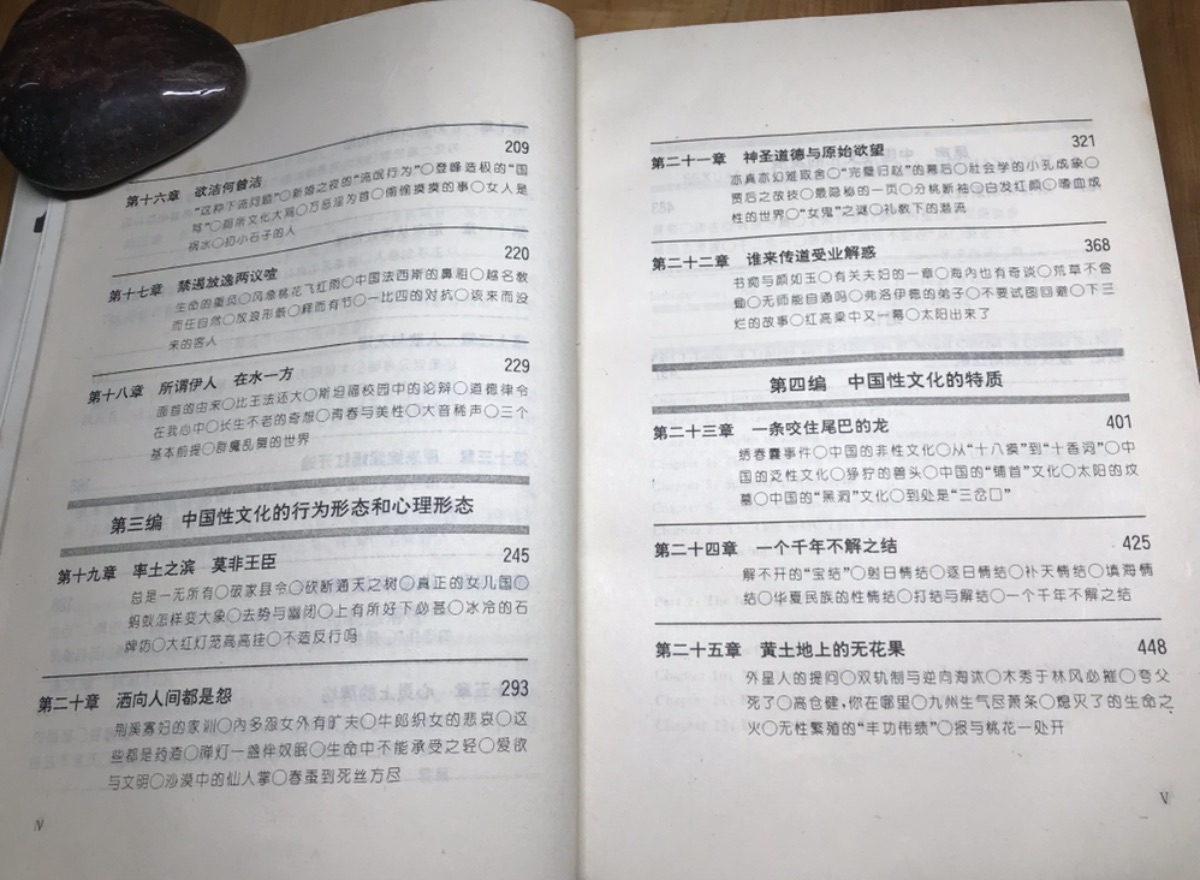 第十六章 欲洁何曾洁 209
"这种下流问题"○新婚之夜的"流氓行为"○登峰造极的"国
骂"○厕所文化大观○万恶淫为首○偷偷摸摸的事○女人是
祸水○扣小石子的人
第十七章 禁遏放逸两议喧 220
生命的重负○风急桃花飞红雨○中国法西斯的鼻祖○越名教
而任自然○放浪形骸○绎而有节○一比四的对抗○该来而没
来的客人
第十八章 所谓伊人 在水一方 229
面首的由来○比王法还大○斯坦福校园中的论辨○道德律令
在我心中○长生不老的奇想○青春与美性○大音稀声○三个
基本前提○群魔乱舞的世界
第三编 中国性文化的行为形态和心理形态
第十九章 率土之滨 莫非王臣 245
总是一无所有○破家县令○砍断通天之树○真正的女儿国○
蚂蚁怎样变大象○去势与幽闭○上有所好下必甚○冰冷的石
牌坊○大红灯笼高高挂○不造反行吗
第二十章 洒向人间都是怨 293
荆溪寡妇的家训○内多怨女外有旷夫○牛郎织女的悲哀○这
些都是药渣○禅灯一盏伴奴眠○生命中不能承受之轻○爱欲
与文明○沙漠中的仙人掌○春蚕到死丝方尽
Ⅳ
第二十一章 神圣道德与原始欲望 321
亦真亦幻难取舍○"完璧归赵"的幕后○社会学的小孔成象○
贾后之故技○最隐秘的一页○分桃断袖○白发红颜○嗜血成
性的世界○"女鬼"之谜○礼教下的潜流
第二十二章 谁来传道受业解惑 368
书痴与颜如玉○有关夫妇的一章○海内也有奇谈○荒草不曾
锄○无师能自通吗○弗洛伊德的弟子○不要试图回避○下三
烂的故事○红高梁中又一幕○太阳出来了
第四编 中国性文化的特质
第二十三章 一条咬住尾巴的龙 401
绣春囊事件○中国的非性文化○从"十八摸"到"十香词"○中
国的泛性文化○狰狞的兽头○中国的"铺首"文化○太阳的坟
墓○中国的"黑洞"文化○到处是"三岔口"
第二十四章 一个千年不解之结 425
解不开的"宝结"○射日情结○逐日情结○补天情结○填海情
结○华夏民族的性情结○打结与解结○一个千年不解之结
第二十五章 黄土地上的无花果 448
外星人的提问○双轨制与逆向淘汰○木秀于林风必摧○夸父
死了○高仓健,你在哪里○九州生气尽萧条○熄灭了的生命之
火○无性繁殖的"丰功伟绩"○报与桃花一处开
Ⅴ